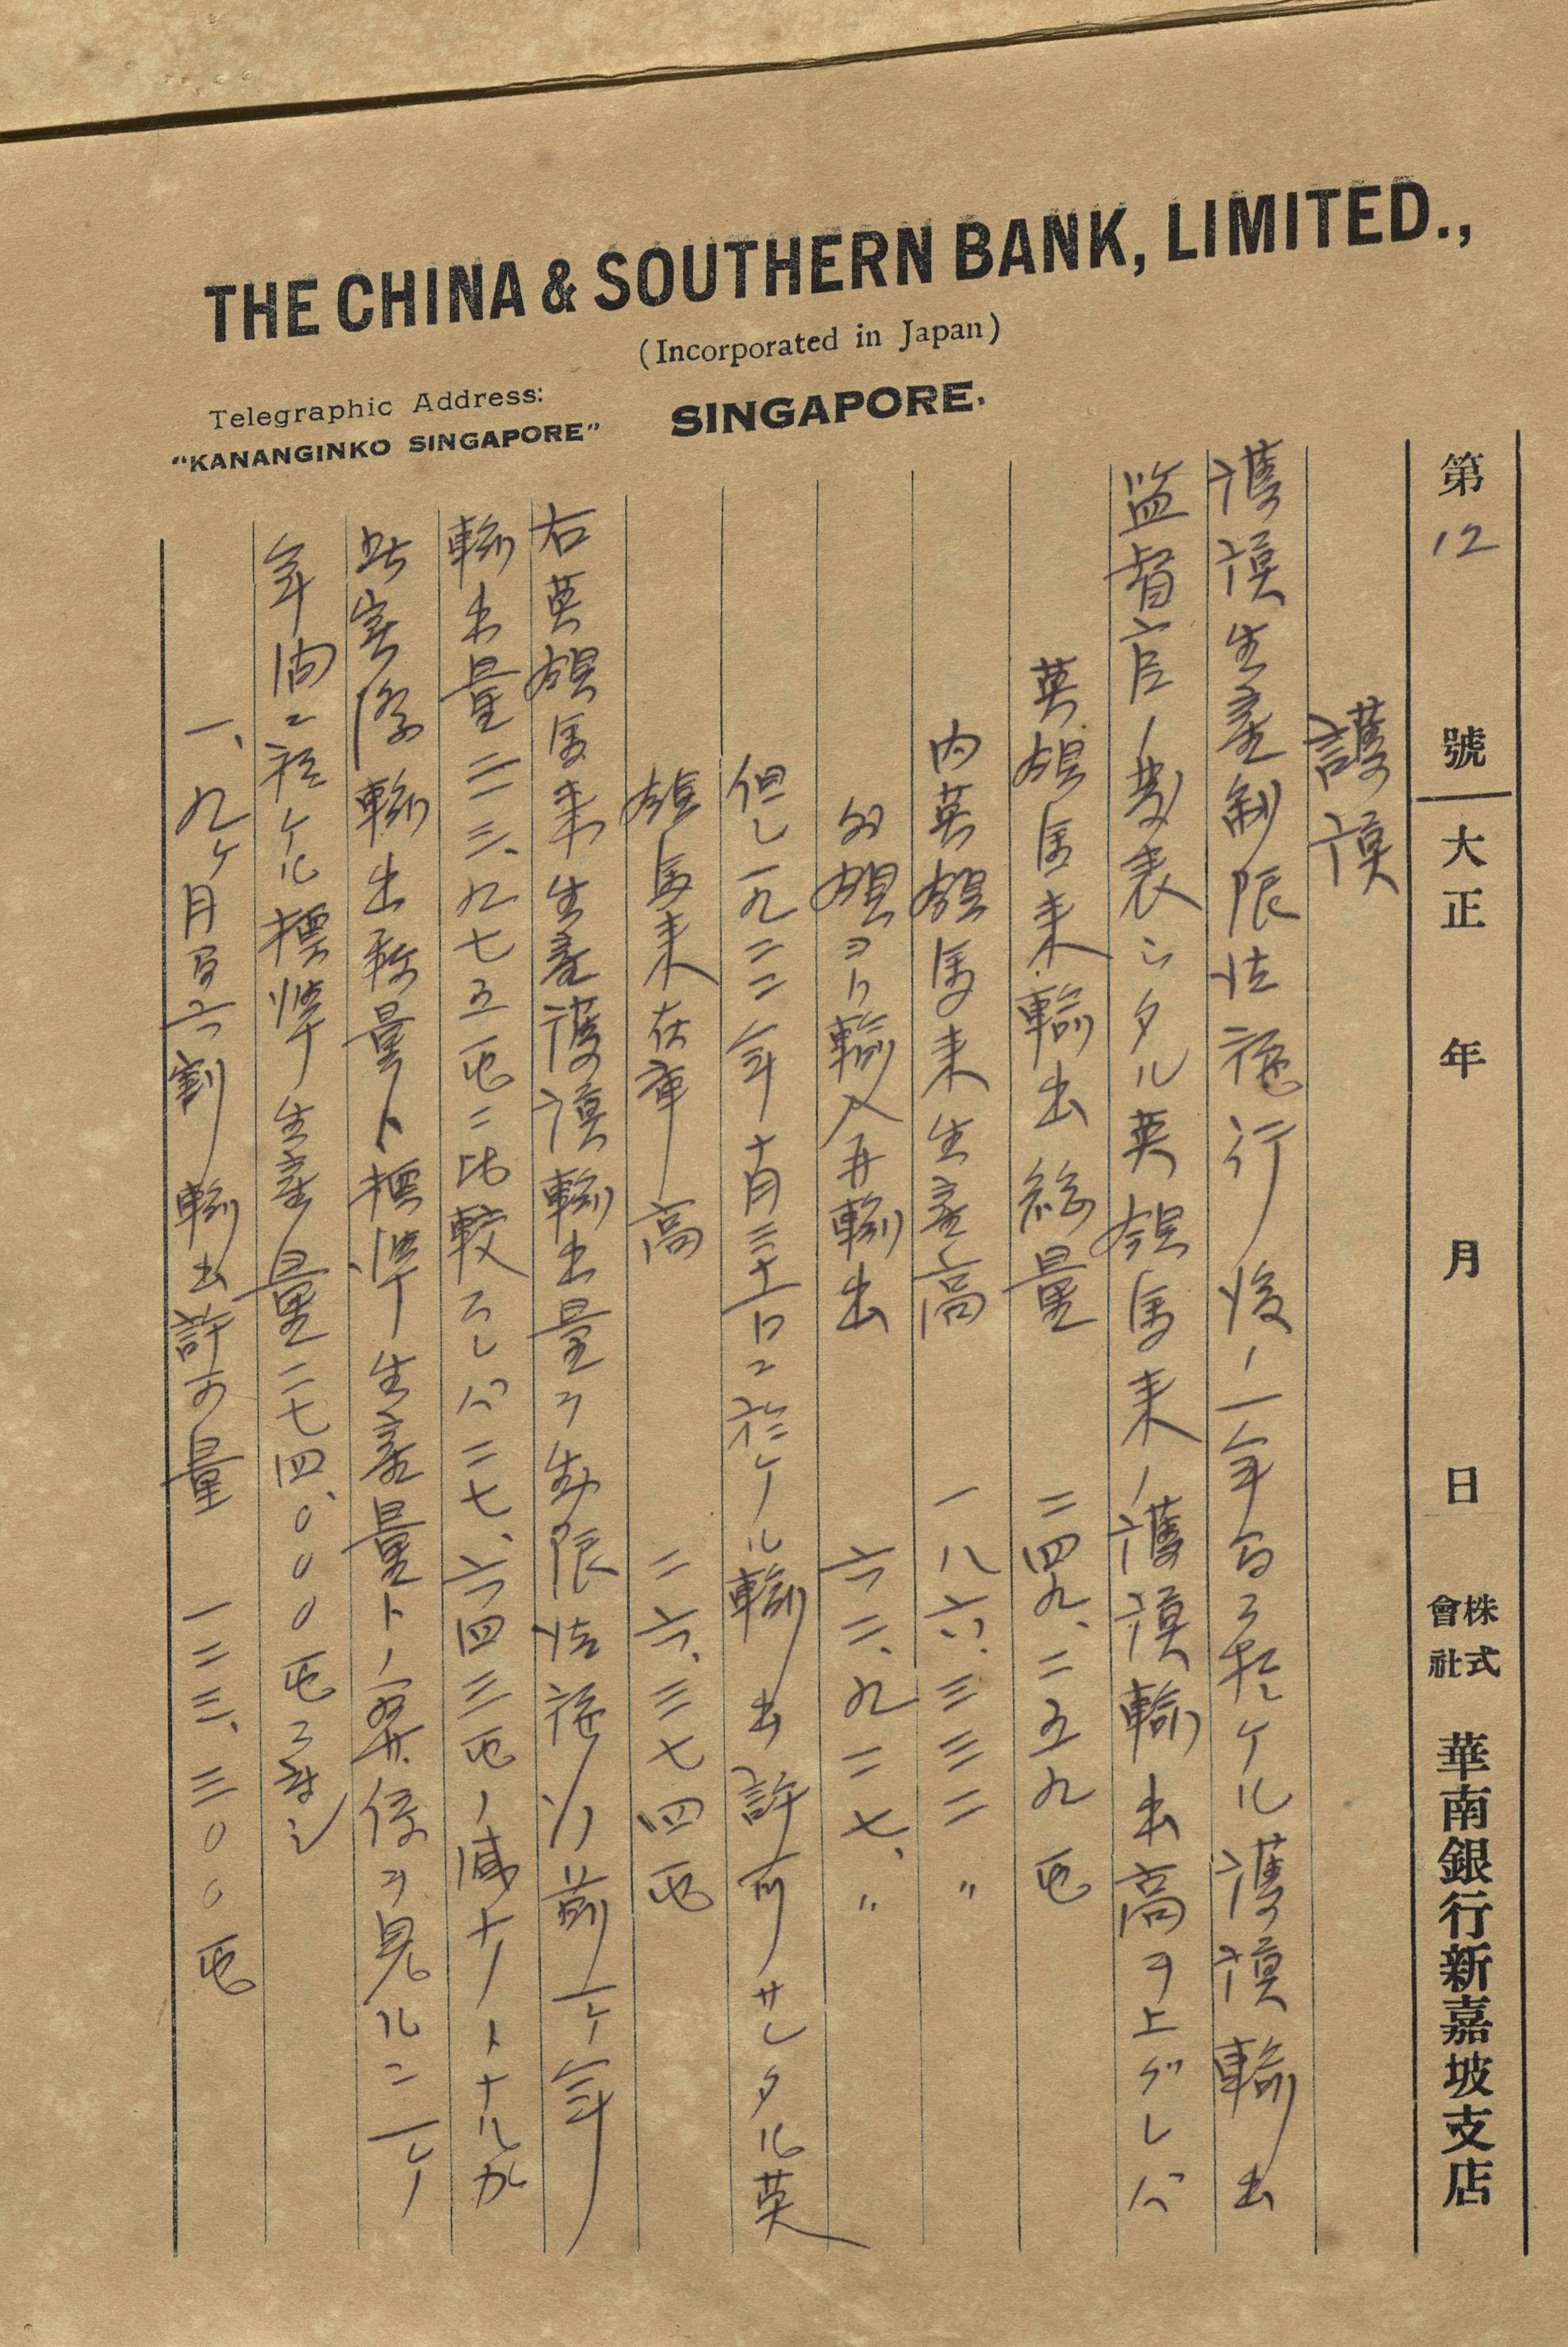 THE CHINA & SOUTHERN BANK, LIMITED.,
(Incorporated in Japan)
Telegraphic Address:
"KANANGINKO SINGAPORE"
SINGAPORE.
第12號 大正 年 月 日 株式會社 華南銀行新嘉坡支店
護謨
護謨生産制限法施行後ノ一年間ニ於ケル護謨輸出
監督官ノ発表シタル英領馬来ノ護謨輸出高ヲ上グレバ
英領馬来輸出総量 二四九、二五九屯
内英領馬来生産高 一八六、三三二〃
外領ヨリ輸入再輸出 六二、九二七、〃
但シ一九二二年十月三十一日ニ於ケル輸出許可サレタル英
領馬来在庫高 二六、三七四屯
右英領馬来生産護謨輸出量ヲ制限法施行前一ケ年
輸出量二一三、九七五屯ニ比較スレバ二七、六四三屯ノ減ナリトナルガ
此実際輸出数量ト標準生産量トノ関係ヲ見ルニ一ケ
年間ニ於ケル標準生産量二七四、〇〇〇屯ニ対シ
一、九ケ月間六割輸出許可量 一二三、三〇〇屯